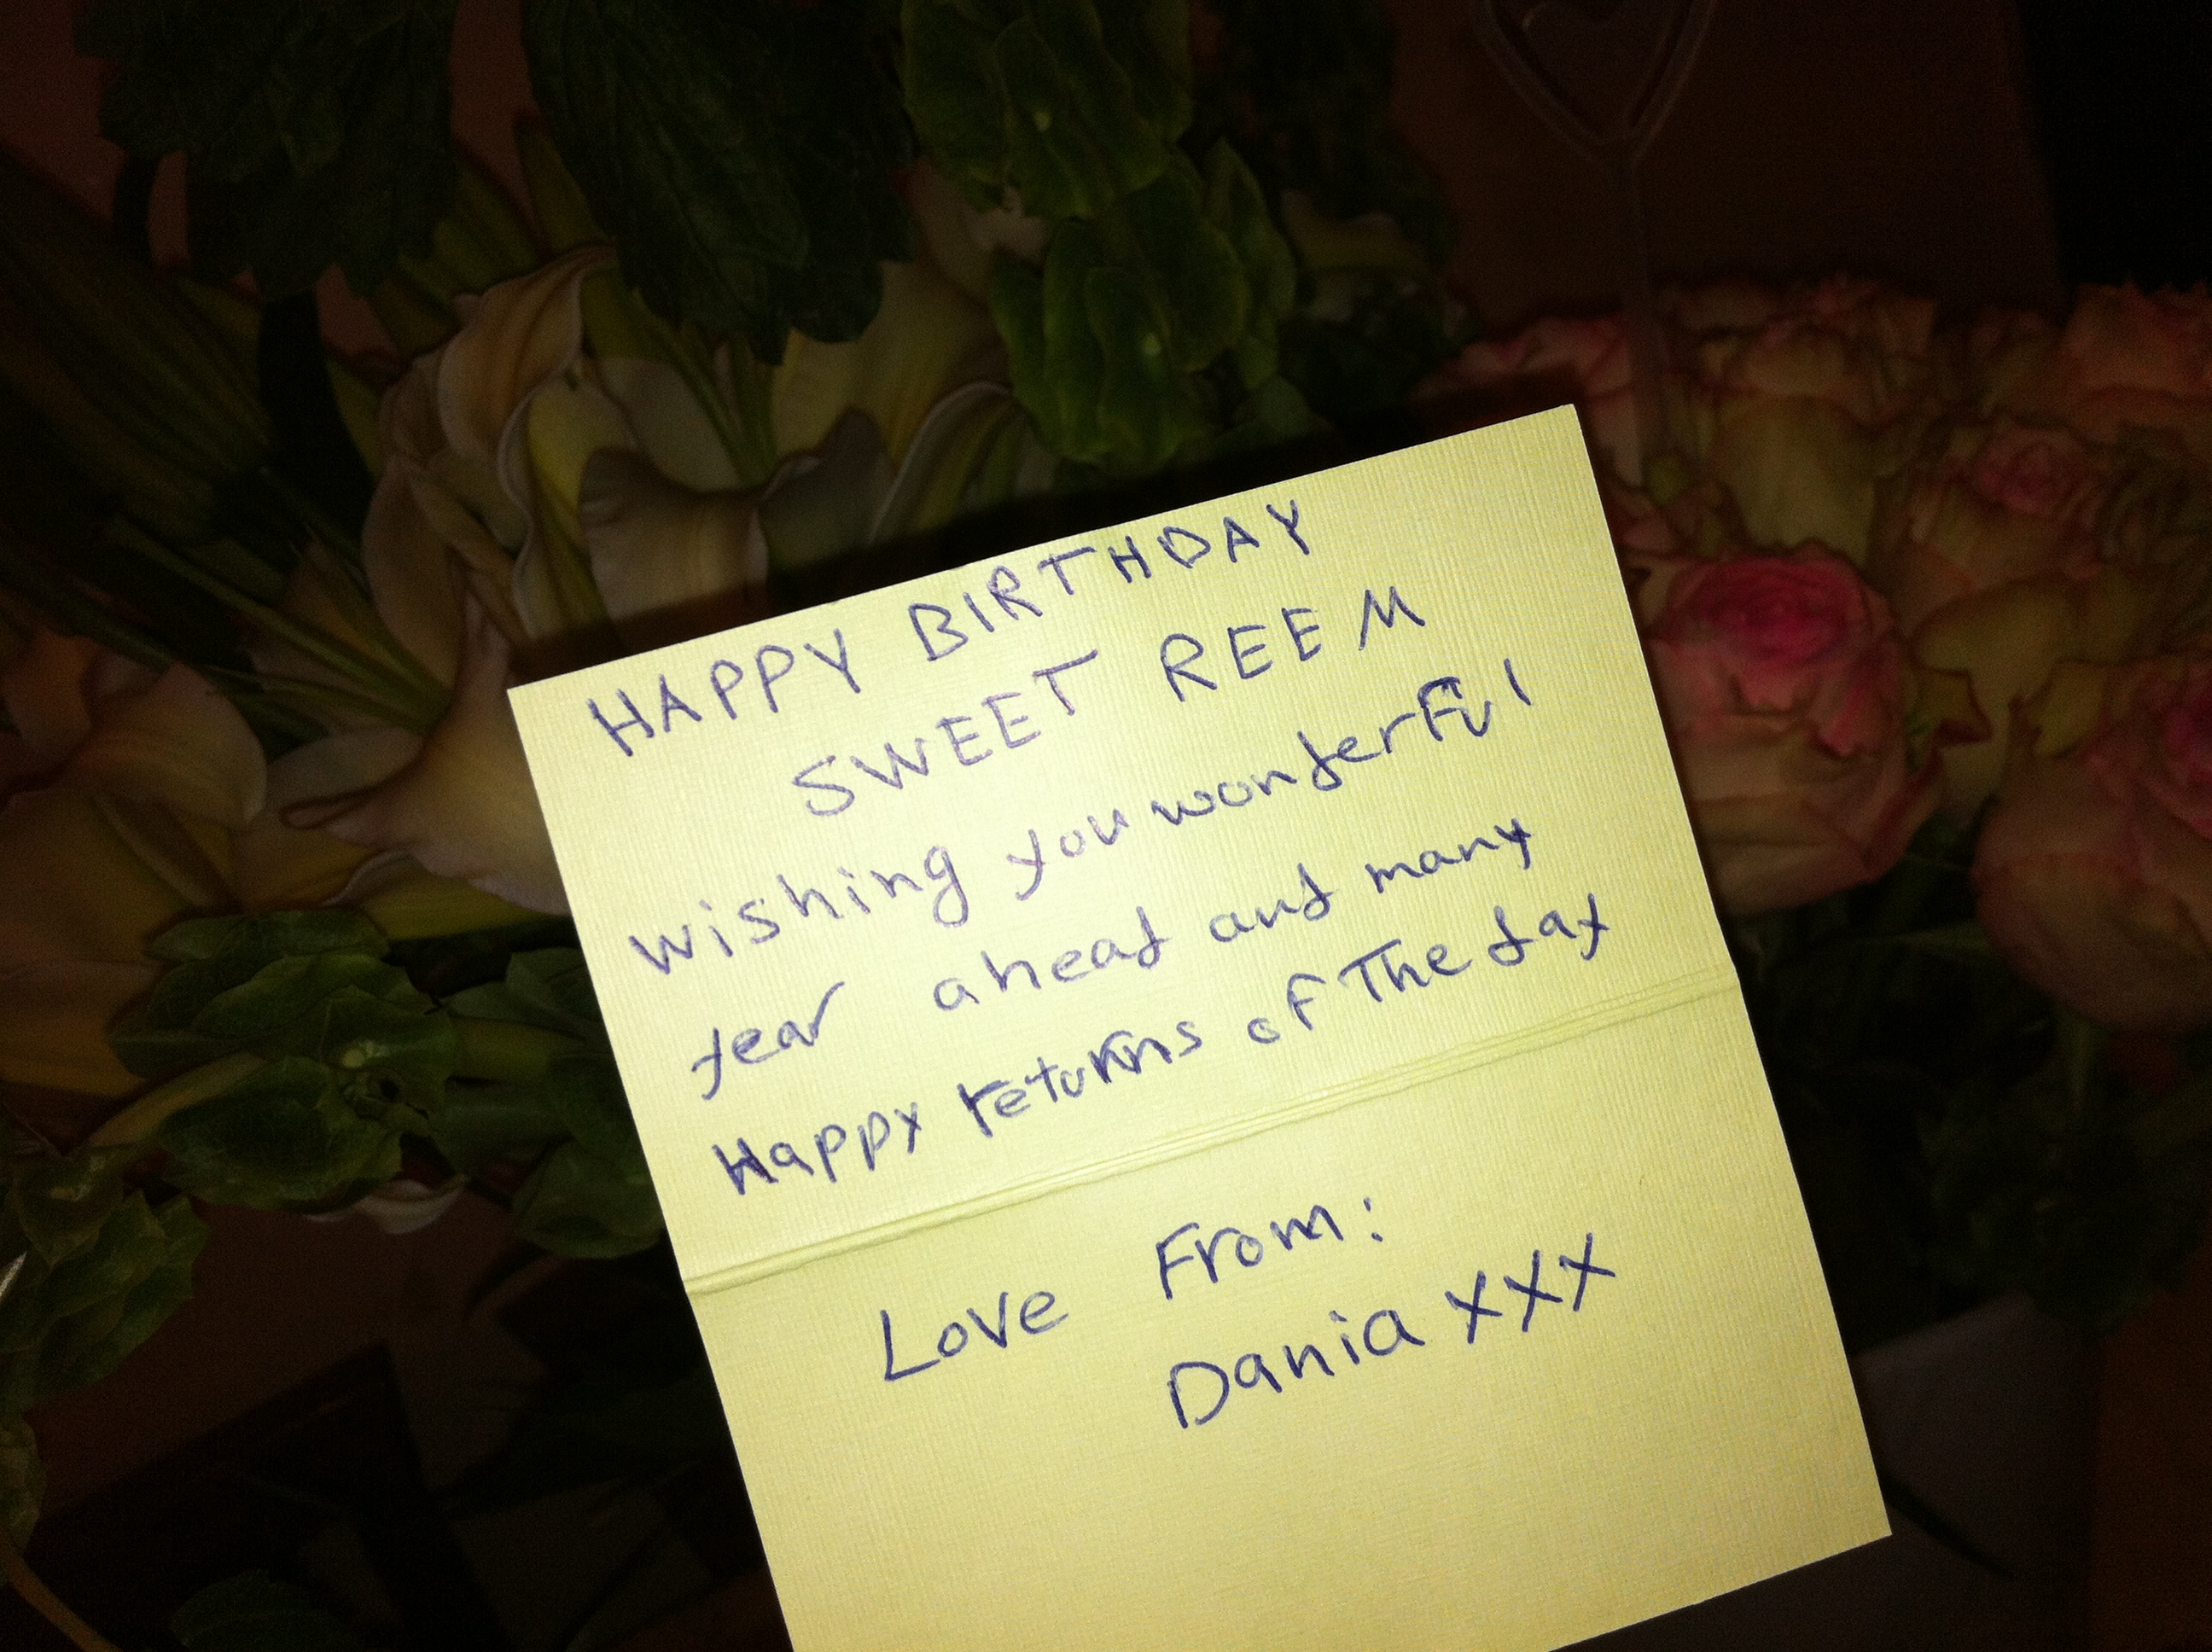 HAPPY BIRTHDAY
SWEET REEM
wishing you wonderful
year ahead and many
Happy returns of The day
Love From:
Dania xxx